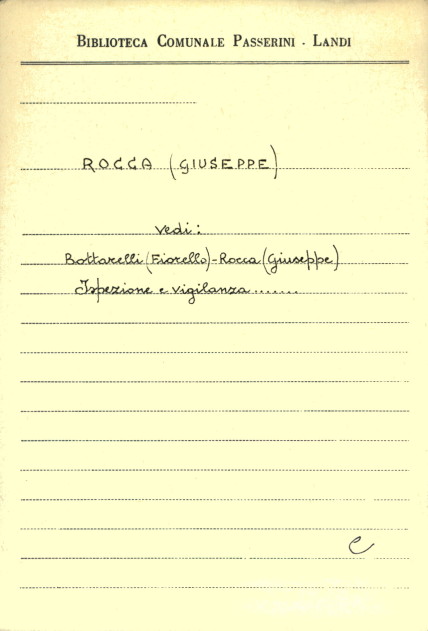 BIBLIOTECA COMUNALE PASSERINI - LANDI
ROCCA (GIUSEPPE)
vedi:
Bottarelli (Fiorello) - Rocca (Giuseppe)
Ispezione e vigilanza.......
e